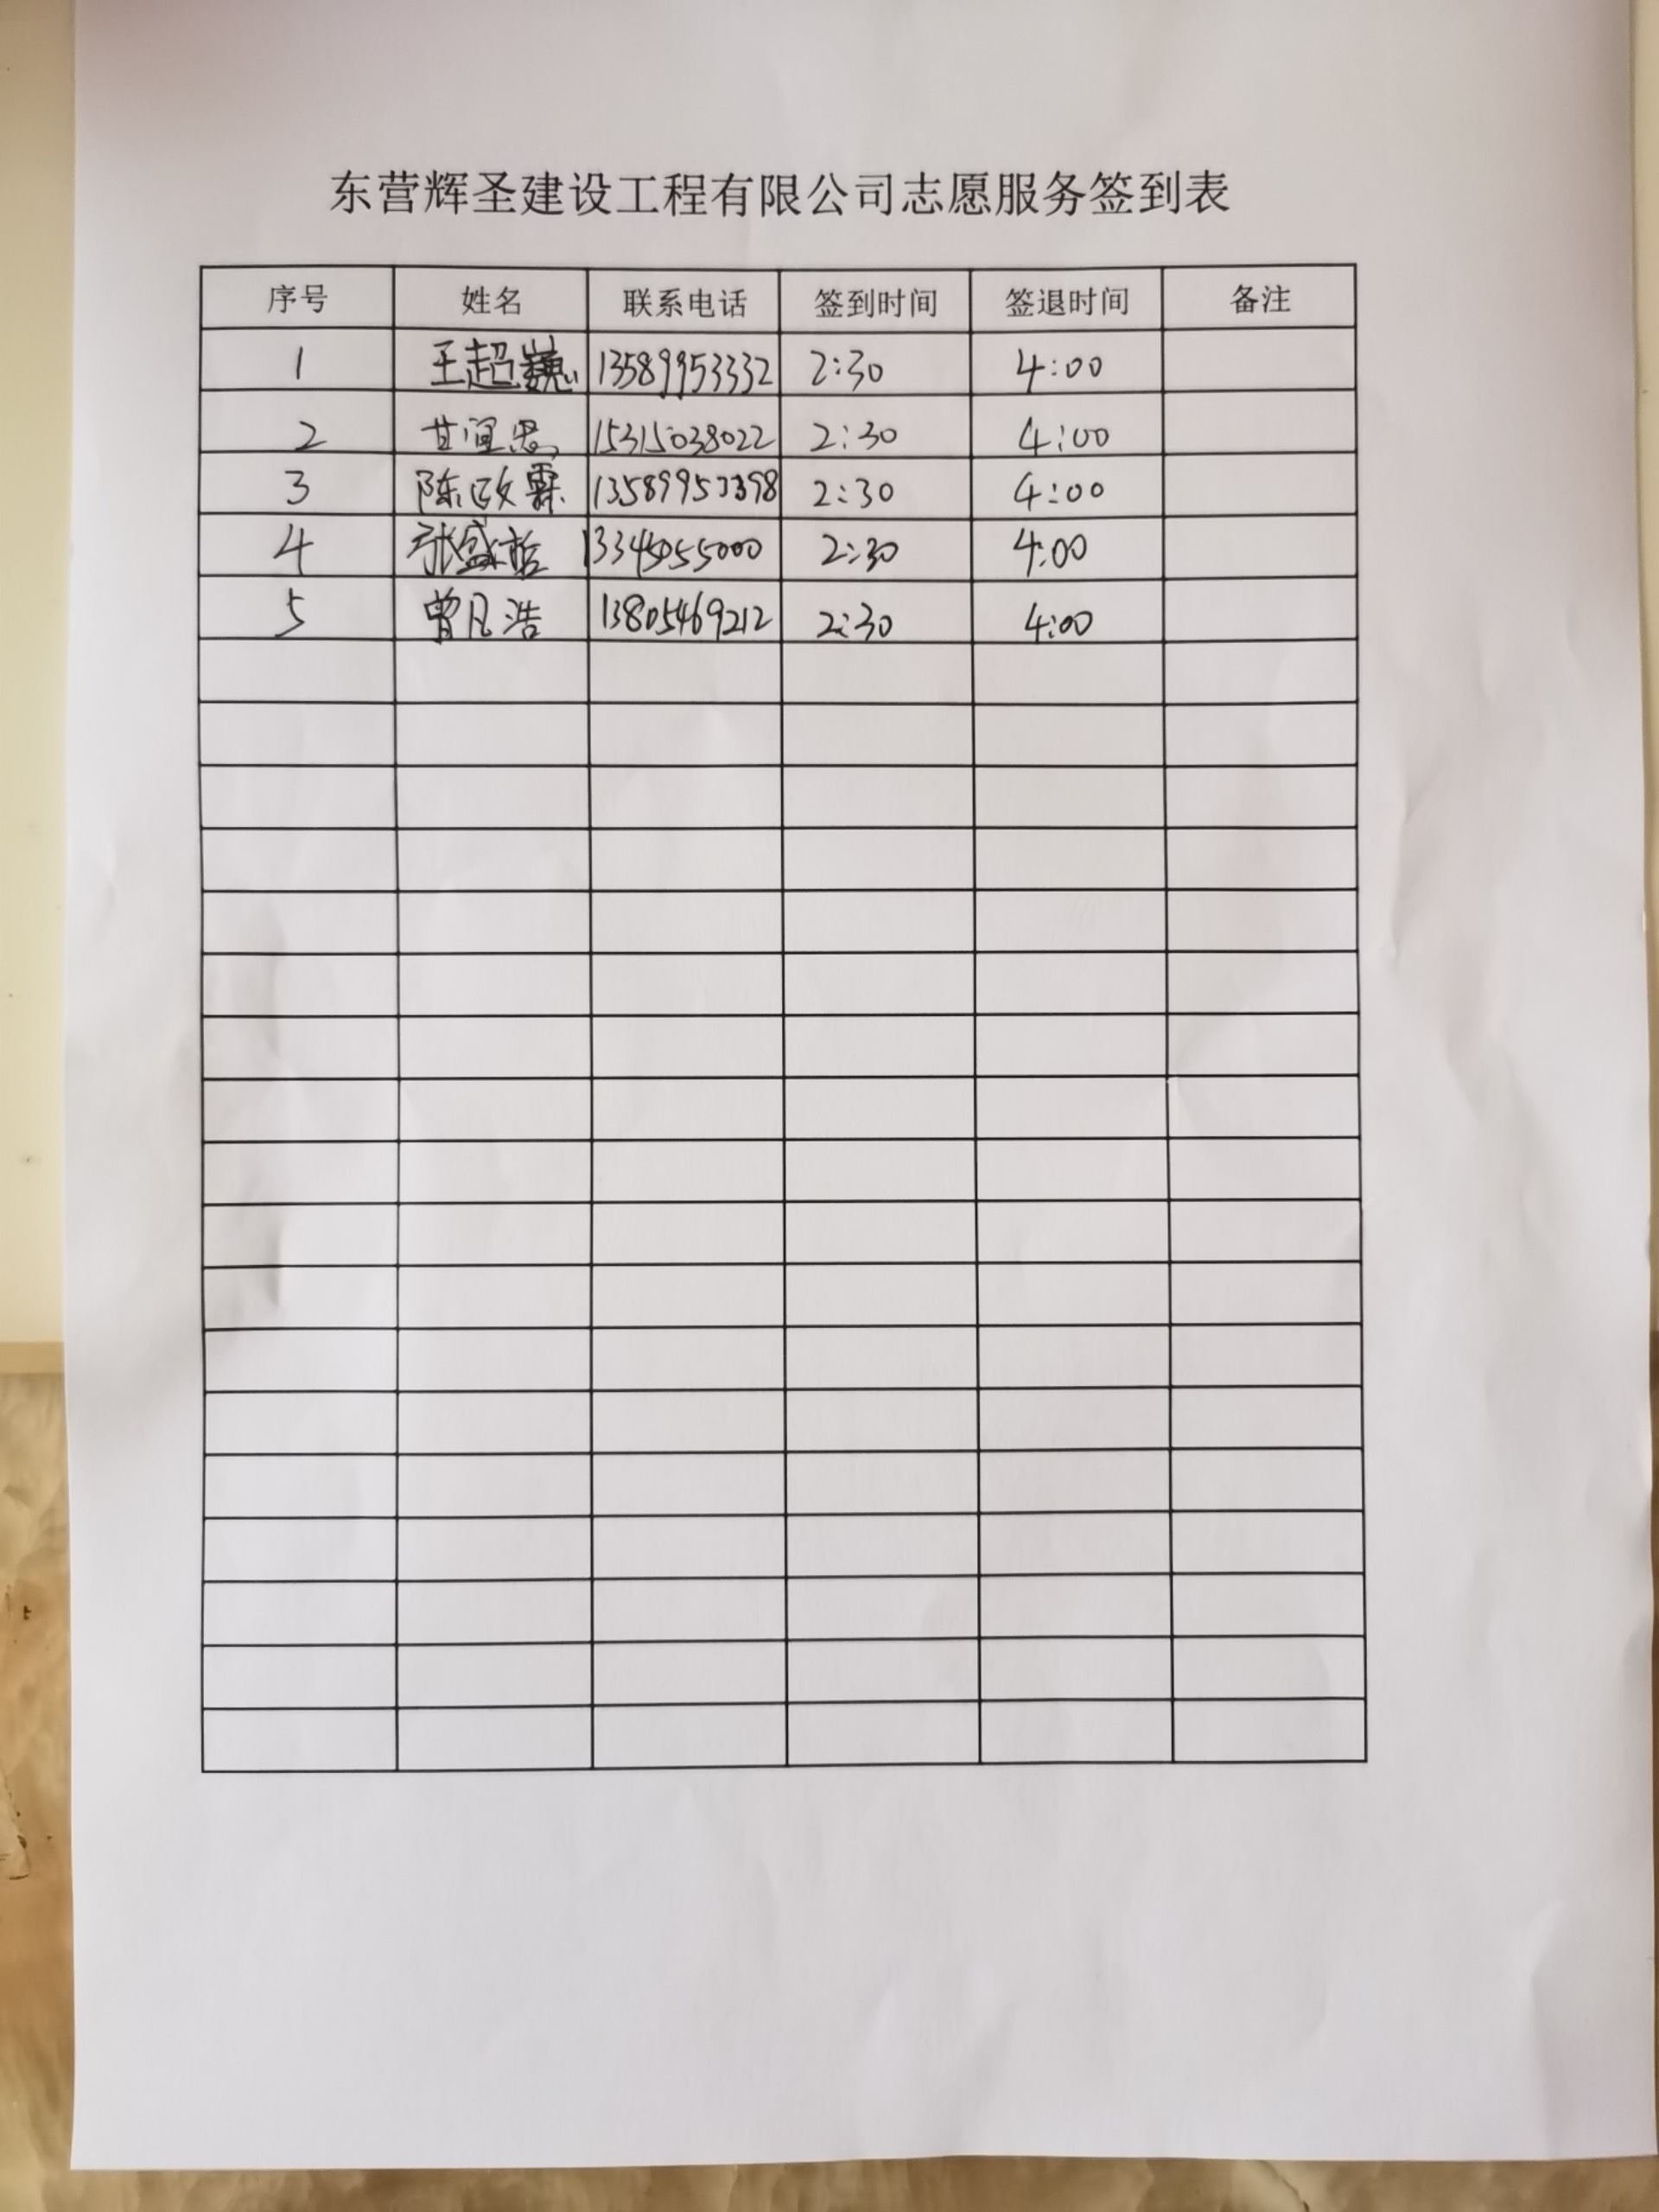 东营辉圣建设工程有限公司志愿服务签到表
序号 姓名 联系电话 签到时间 签退时间 备注
1 王超巍 13589953332 2:30 4:00
2 甘宜忠 15315038022 2:30 4:00
3 陈政霖 13589953398 2:30 4:00
4 张盛哲 13345055000 2:30 4:00
5 曾凡浩 13805469212 2:30 4:00